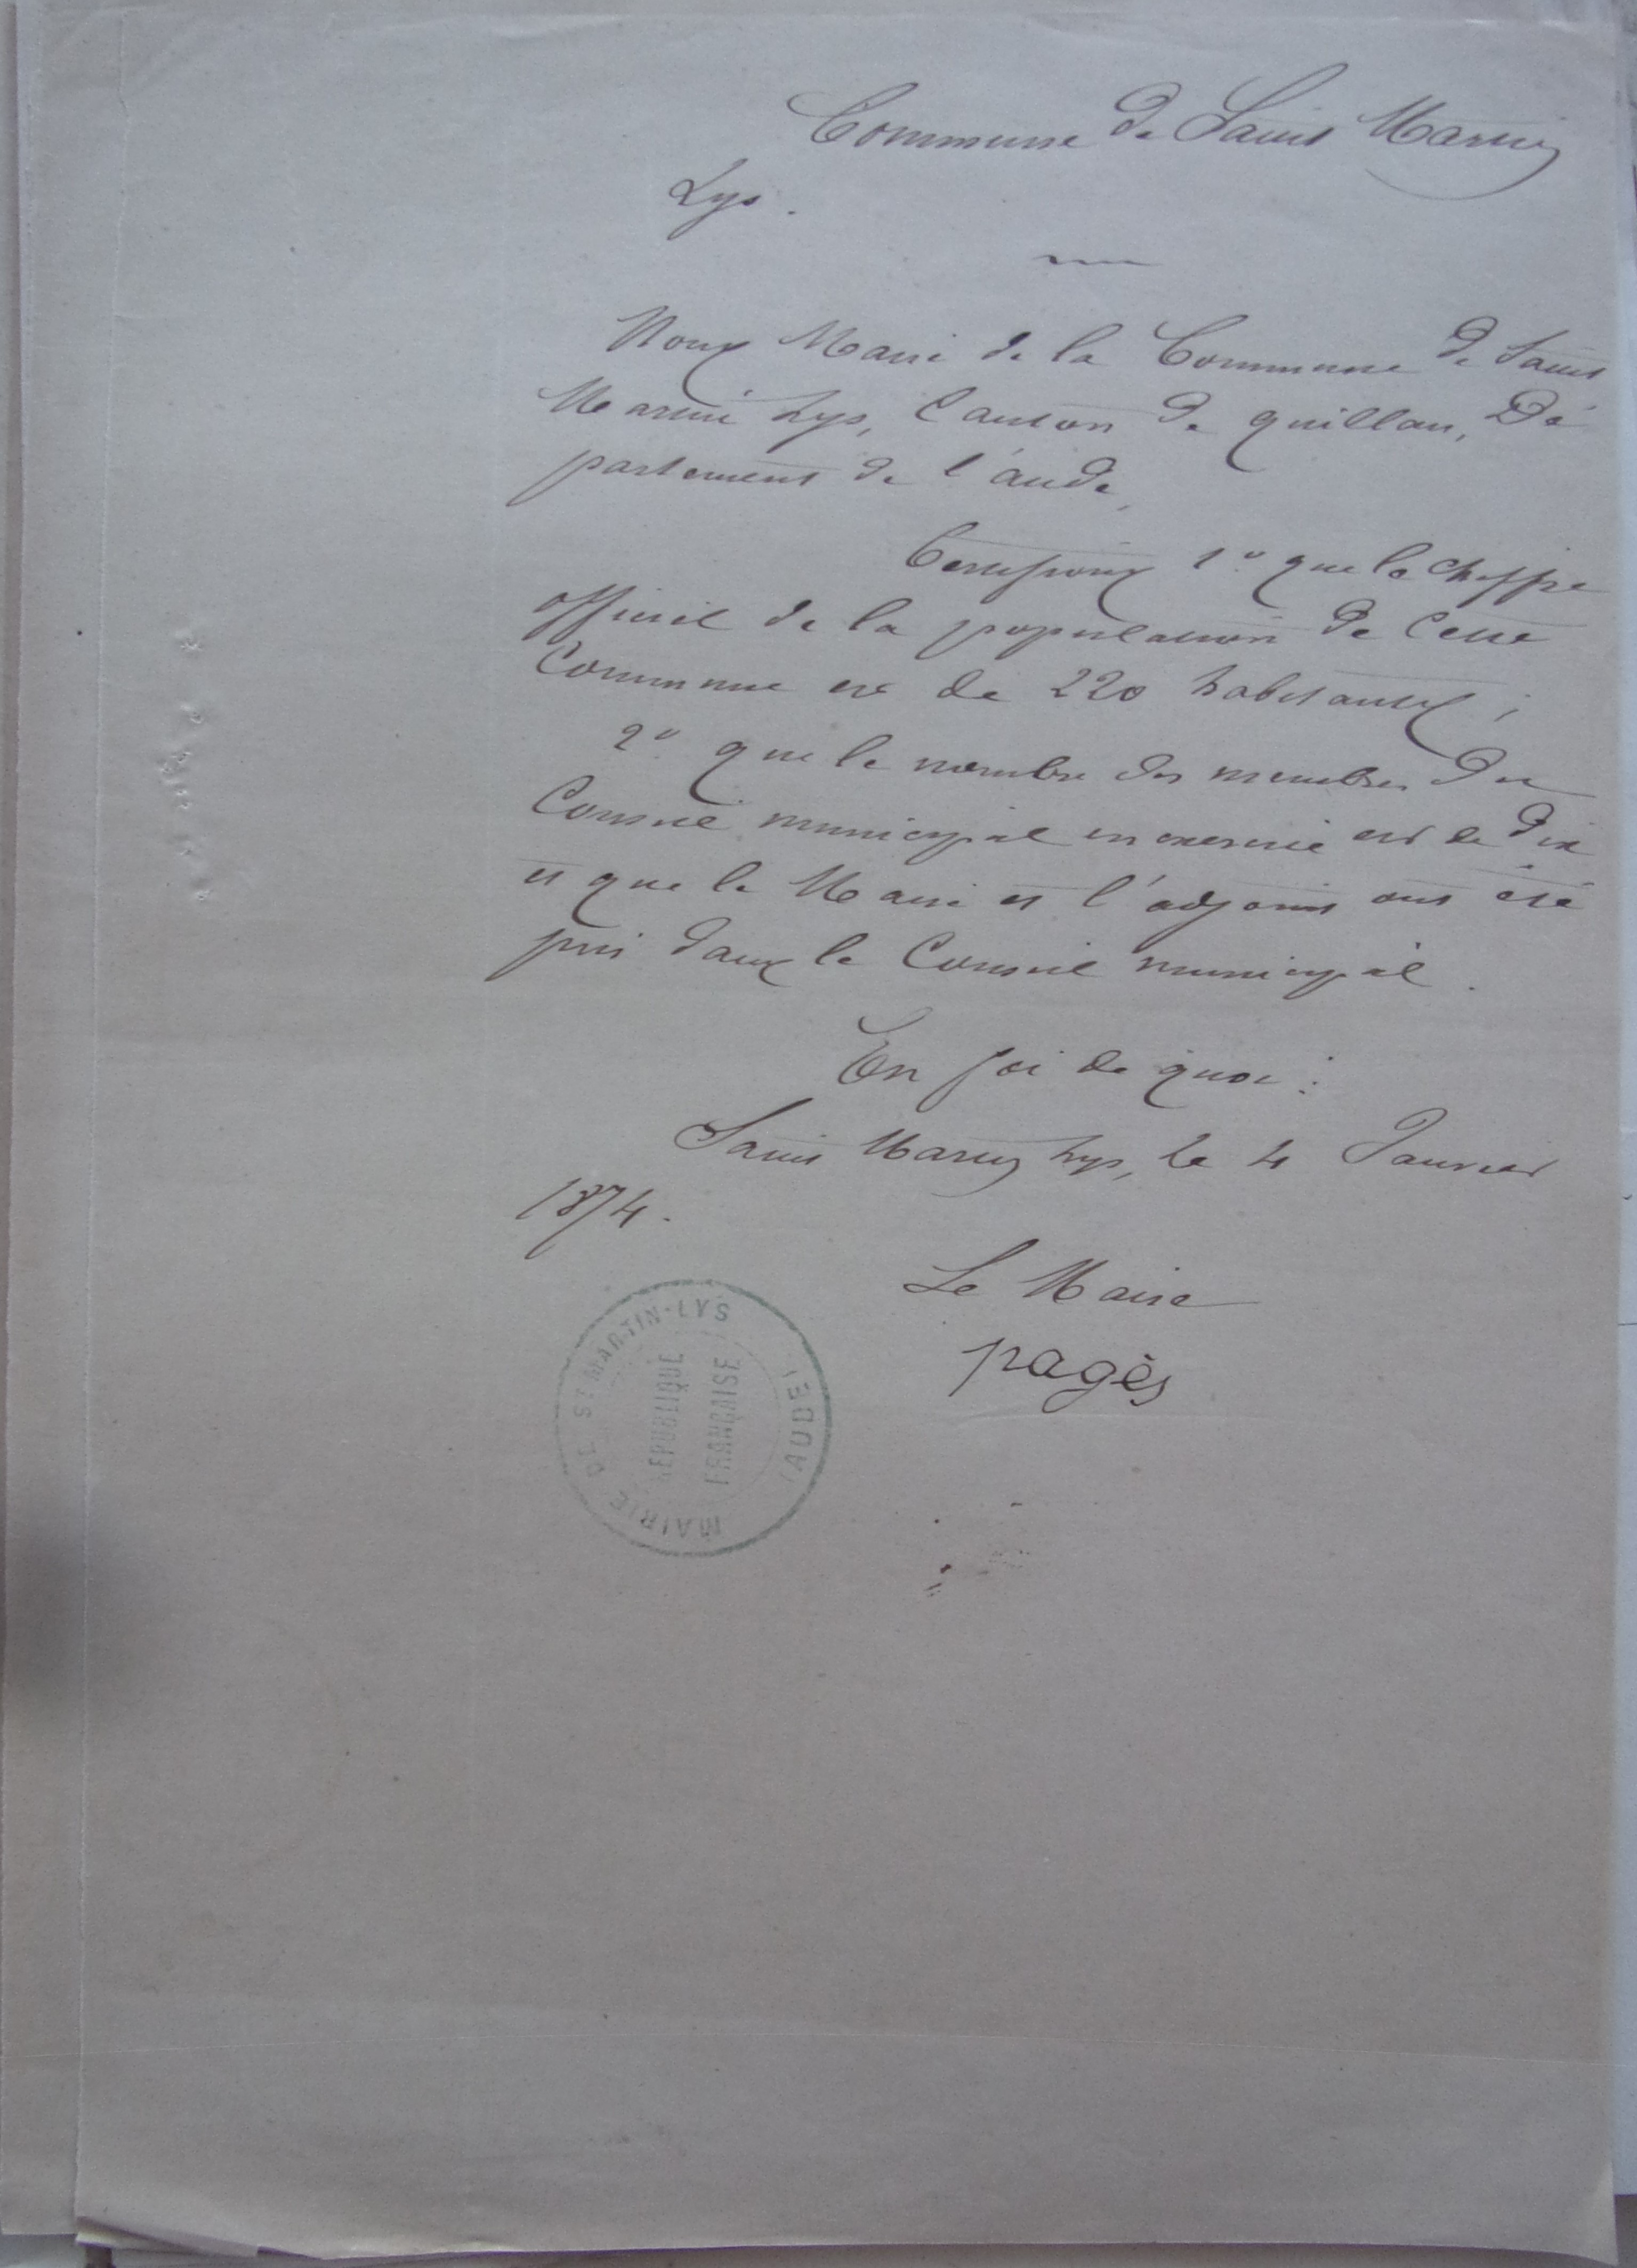 Commune de Saint Martin
Lys.
Nous Maire de la Commune de Saint
Martin Lys, Canton de quillan, Dé
partement de l'aude,
Certifions 1º que le chiffre
officiel de la population de cette
Commune est de 220 habitants ;
2º que le nombre des membres du
Conseil municipal en exercice est de dix
et que le Maire et l'adjoint ont été
pris dans le Conseil municipal.
En foi de quoi :
Saint Martin Lys, le 4 Janvier
1874.
Le Maire
pagès
MAIRIE DE ST MARTIN-LYS
(AUDE)
RÉPUBLIQUE
FRANÇAISE